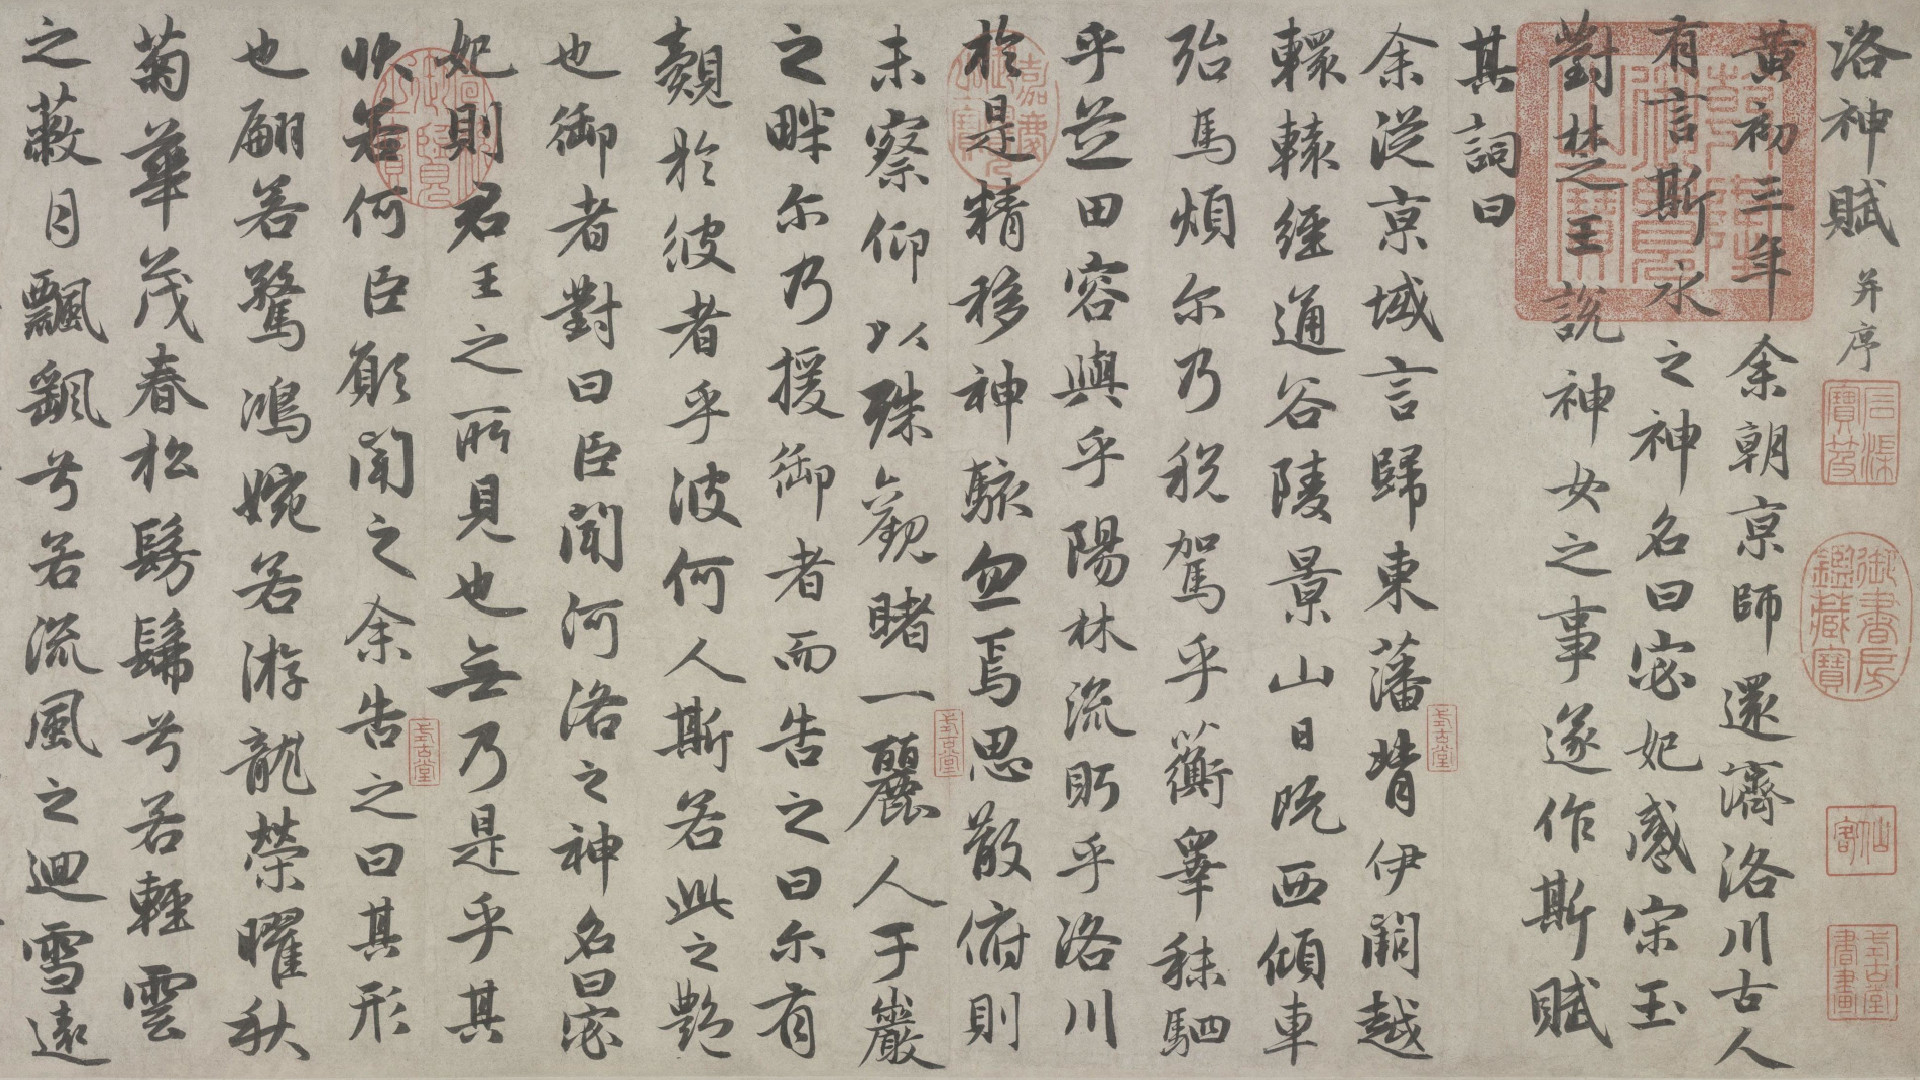 洛神賦并序
黄初三年余朝京師還濟洛川古人
有言斯水之神名曰宓妃感宋玉
對楚王說神女之事遂作斯賦
其詞曰
余從京域言歸東藩背伊闕越
轘轅經通谷陵景山日既西傾車
殆馬煩尓乃税駕乎蘅皋秣駟
乎芝田容與乎陽林流眄乎洛川
於是精移神駭忽焉思散俯則
未察仰以殊觀睹一麗人于巖
之畔尓乃援御者而告之曰尓有
覿於彼者乎彼何人斯若此之艷
也御者對曰臣聞河洛之神名曰宓
妃則君王之所見也無乃是乎其
狀若何臣願聞之余告之曰其形
也翩若驚鴻婉若游龍榮曜秋
菊華茂春松髣髴兮若輕雲
之蔽月飄飖兮若流風之迴雪遠
石渠寶笈
御書房鑑藏寶
式古堂書畫
式古堂
式古堂
式古堂